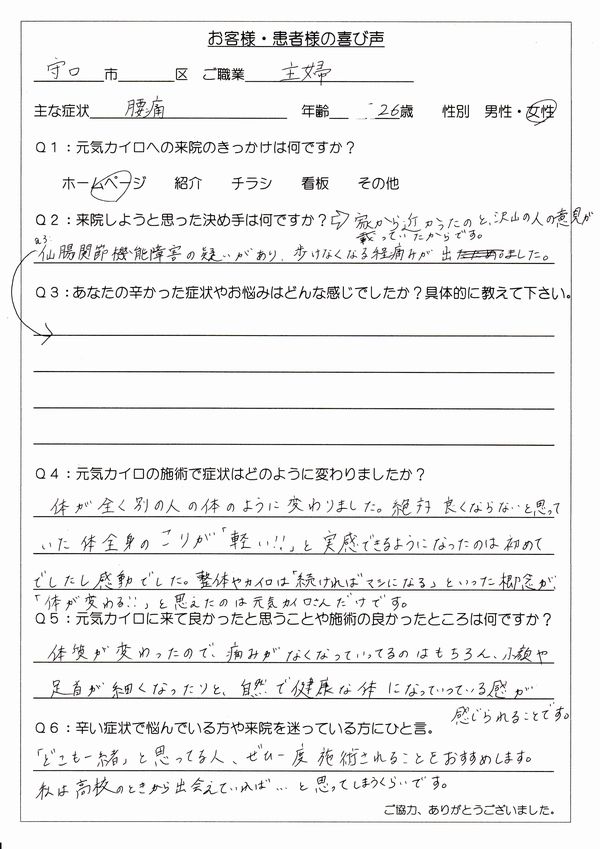 お客様・患者様の喜び声
守口 市 区 ご職業 主婦
主な症状 腰痛 年齢 26歳 性別 男性・女性
Q1:元気カイロへの来院のきっかけは何ですか?
ホームページ 紹介 チラシ 看板 その他
Q2:来院しようと思った決め手は何ですか?⇨ 家から近かったのと、沢山の人の意見が
載っていたからです。
Q3:
仙腸関節機能障害の疑いがあり、歩けなくなる程痛みが出ました。
Q3:あなたの辛かった症状やお悩みはどんな感じでしたか?具体的に教えて下さい。
Q4:元気カイロの施術で症状はどのように変わりましたか?
体が全く別の人の体のように変わりました。絶対良くならないと思って
いた体全身のこりが「軽い!!」と実感できるようになったのは初めて
でしたし感動でした。整体やカイロは「続ければマシになる」といった概念が、
「体が変わる!!」と思えたのは元気カイロさんだけです。
Q5:元気カイロに来て良かったと思うことや施術の良かったところは何ですか?
体質が変わったので、痛みがなくなっていってるのはもちろん、小顔や
足首が細くなったりと、自然で健康な体になっていっている感が
感じられることです。
Q6:辛い症状で悩んでいる方や来院を迷っている方にひと言。
「どこも一緒」と思ってる人、ぜひ一度施術されることをおすすめします。
私は高校のときから出会えていれば…と思ってしまうくらいです。
ご協力、ありがとうございました。